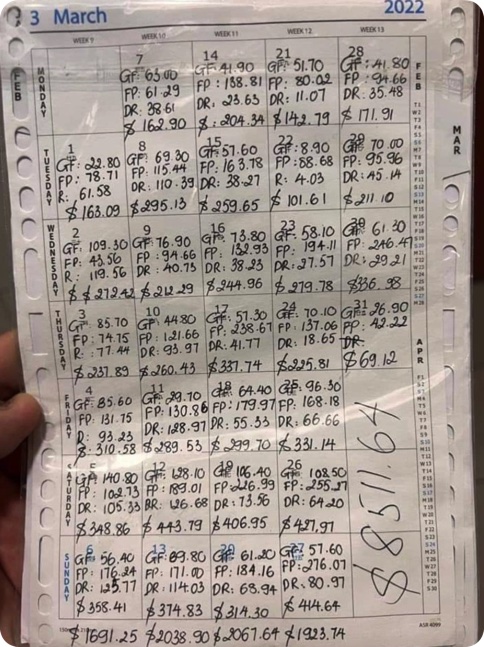 3 March 2022
WEEK 9 WEEK 10 WEEK 11 WEEK 12 WEEK 13
FEB
MONDAY
7
GF: 63.00
FP: 61.29
DR: 38.61
$ 162.90
14
GF: 41.90
FP: 138.81
DR: 23.63
$: 204.34
21
GF: 51.70
FP: 80.02
DR: 11.07
$142.79
28
GF: 41.80
FP: 94.66
DR: 35.48
$ 171.91
TUESDAY
1
GF: 22.80
FP: 78.71
R: 61.58
$163.09
8
GF: 69.30
FP: 115.44
DR: 110.39
$295.13
15
GF: 57.60
FP: 163.78
DR: 38.27
$259.65
22
GF: 8.90
FP: 88.68
R: 4.03
$ 101.61
29
GF: 70.00
FP: 95.96
DR: 45.14
$211.10
WEDNESDAY
2
GF: 109.30
FP: 43.56
R: 119.56
$ $272.42
9
GF: 76.90
FP: 94.66
DR: 40.73
$212.29
16
GF: 73.80
FP: 132.93
DR: 38.23
$244.96
23
GF: 58.10
FP: 194.11
DR: 27.57
$279.78
30
GF: 61.30
FP: 246.47
DR: 29.21
$336.98
THURSDAY
3
GF: 85.70
FP: 74.75
R: 77.44
$237.89
10
GF: 44.80
FP: 121.66
DR: 93.97
$260.43
17
GF: 57.30
FP: 238.67
DR: 41.77
$337.74
24
GF: 70.10
FP: 137.06
DR: 18.65
$225.81
31
GF: 26.90
FP: 42.22
DR:
$69.12
FRIDAY
4
GF: 85.60
FP: 131.75
R: 93.23
$ 310.58
11
GF: 29.70
FP: 130.86
DR: 128.97
$289.53
18
GF: 64.40
FP: 179.97
DR: 55.33
$299.70
25
GF: 96.30
FP: 168.18
DR: 66.66
$331.14
SATURDAY
5
GF: 140.80
FP: 102.73
DR: 105.33
$348.86
12
GF: 128.10
FP: 189.01
DR: 126.68
$443.79
19
GF: 106.40
FP: 226.99
DR: 73.56
$406.95
26
GF: 108.50
FP: 255.27
DR: 64.20
$427.97
SUNDAY
6
GF: 56.40
FP: 176.24
DR: 125.77
$358.41
13
GF: 89.80
FP: 171.00
DR: 114.03
$374.83
20
GF: 61.20
FP: 184.16
DR: 68.94
$314.30
27
GF: 57.60
FP: 276.07
DR: 80.97
$414.64
$8511.64
$1691.25 $2038.90 $2067.64 $1923.74
FEB
MAR
APR
ASR 4099